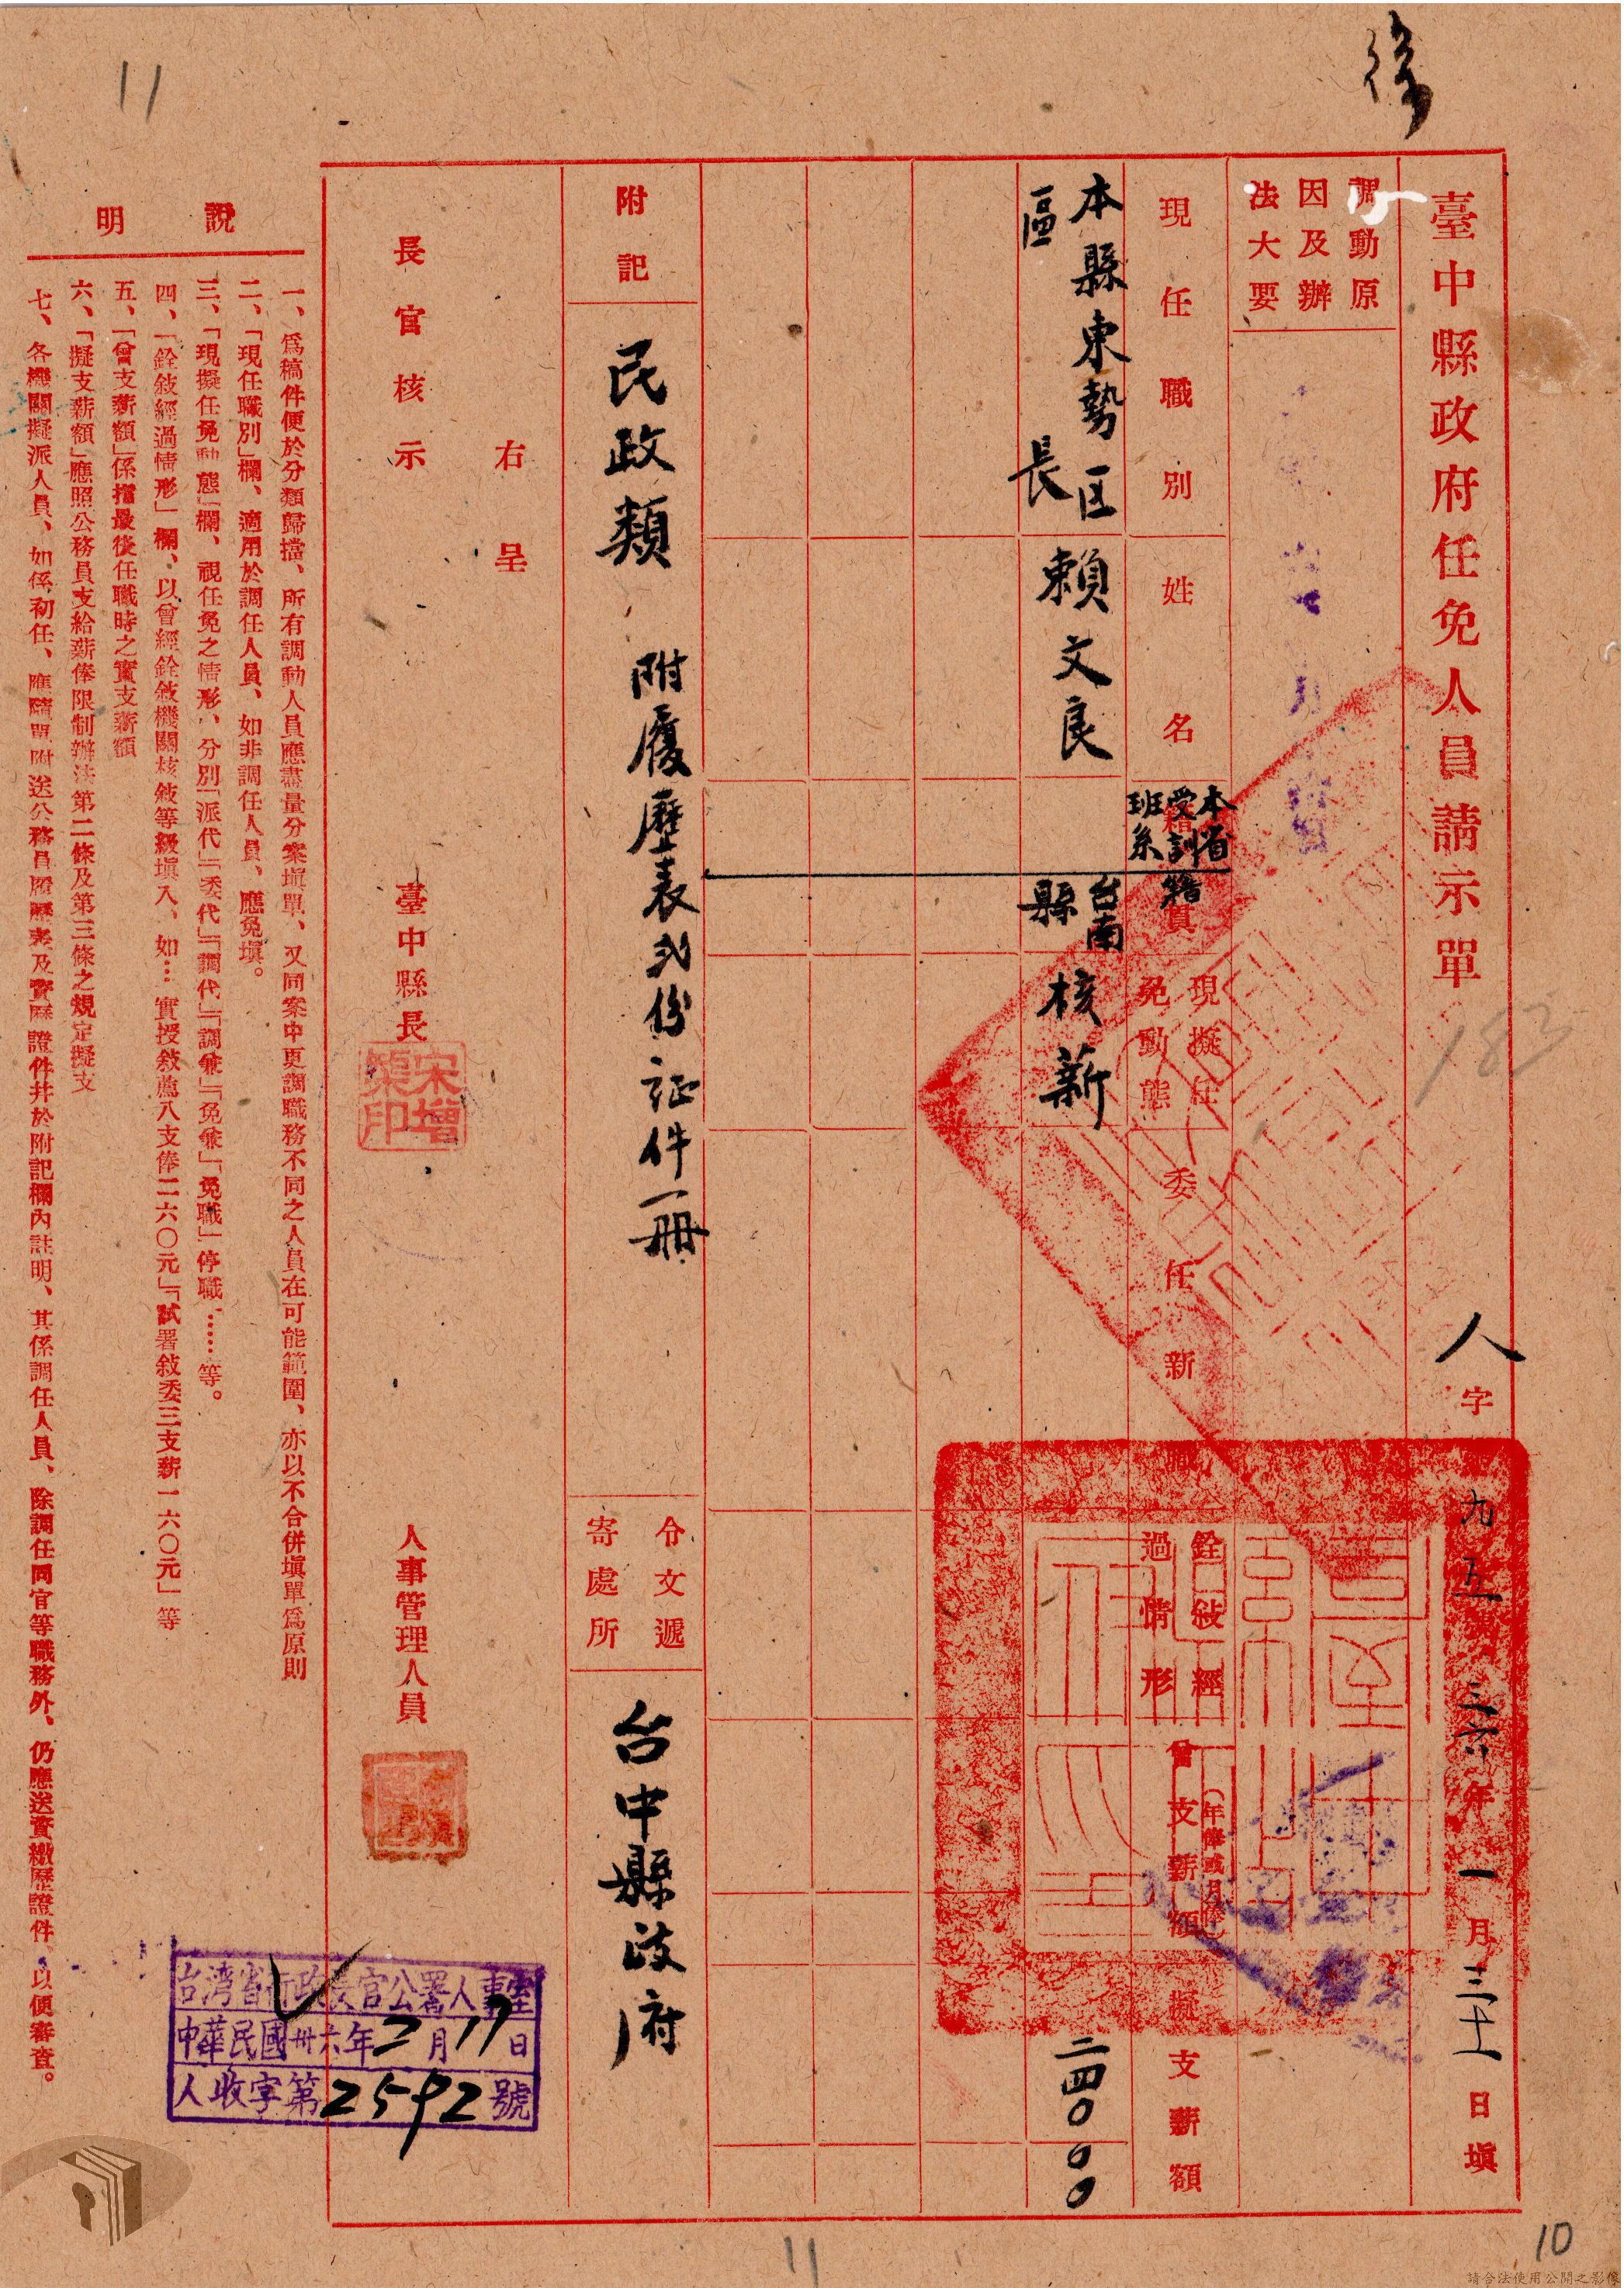 徐
11
臺中縣政府任免人員請示單
人字第九五號 三六年一月三十一日填
183
調動原
因及辦
法大要
現任職別
姓名
籍貫
本省
受訓
班系
籍
現擬任
免動態
委任新職
銓敍經
過情形
曾支薪額
(年俸或月俸)
擬支薪額
本縣東勢区
區長
賴文良
台南
縣
核薪
二四〇〇〇
附記
民政類
附履歷表弍份证件一册
令文遞
寄處所
台中縣政府
右呈
長官核示
臺中縣長
宋增榘印
人事管理人員
說明
一、為稿件便於分類歸擋、所有調動人員應盡量分案塡單、又同案中更調職務不同之人員在可能範圍、亦以不合併塡單為原則
二、「現任職別」欄、適用於調任人員、如非調任人員、應免塡。
三、「現擬任免動態」欄、視任免之情形、分別「派代」「委代」「調代」「調兼」「免兼」「免職」停職……等。
四、「銓敍經過情形」欄、以曾經銓敍機關核敍等級塡入、如…實授敍薦八支俸二六〇元」「試署敍委三支薪一六〇元」等
五、「曾支薪額」係指最後任職時之實支薪額
六、「擬支薪額」應照公務員支給薪俸限制辦法第二條及第三條之規定擬支
七、各機關擬派人員、如係初任、應隨單附送公務員履歷表及資歷證件幷於附記欄內註明、其係調任人員、除調任同官等職務外、仍應送資繳歷證件、以便審查。
台湾省行政長官公署人事室
中華民國卅六年2月17日
人收字第2592號
11
10
請合法使用公開之影像